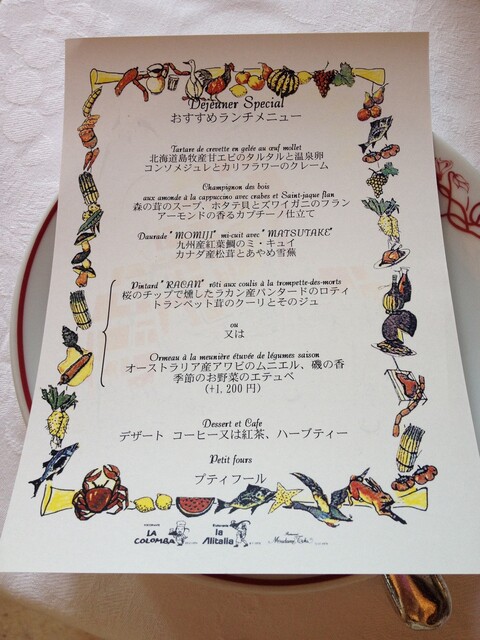 Déjeuner Special
おすすめランチメニュー
Tartare de crevette en gelée au œuf mollet
北海道島牧産甘エビのタルタルと温泉卵
コンソメジュレとカリフラワーのクレーム
Champignon des bois
aux amonde à la cappuccino avec crabes et Saint-jaque flan
森の茸のスープ、ホタテ貝とズワイガニのフラン
アーモンドの香るカプチーノ仕立て
Daurade "MOMIJI" mi-cuit avec "MATSUTAKE"
九州産紅葉鯛のミ・キュイ
カナダ産松茸とあやめ雪蕪
Pintard "RACAN" rôti aux coulis à la trompette-des-morts
桜のチップで燻したラカン産パンタードのロティ
トランペット茸のクーリとそのジュ
ou
又は
Ormeau à la meunière étuvée de légumes saison
オーストラリア産アワビのムニエル、磯の香
季節のお野菜のエテュベ
(+1,200円)
Dessert et Cafe
デザート コーヒー又は紅茶、ハーブティー
Petit fours
プティフール
LA COLOMBA
la Alitalia